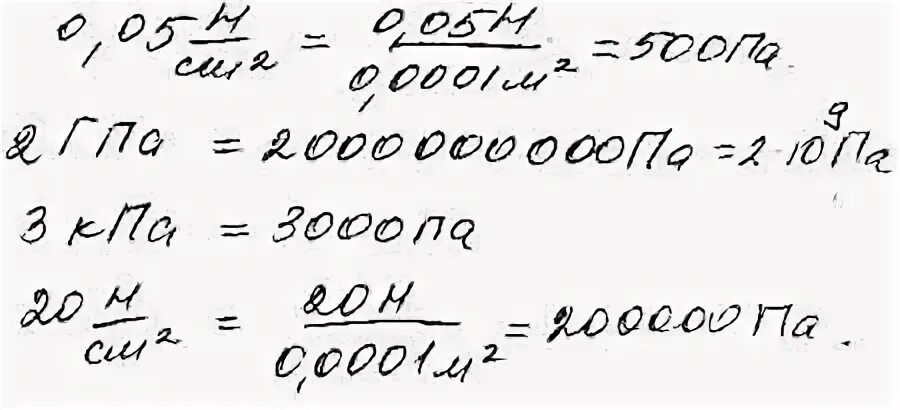 0,05 Н/см² = 0,05Н/0,0001м² = 500Па.
2 ГПа = 2000000000Па = 2·10⁹Па
3 кПа = 3000па
20 Н/см² = 20Н/0,0001м² = 200000Па.